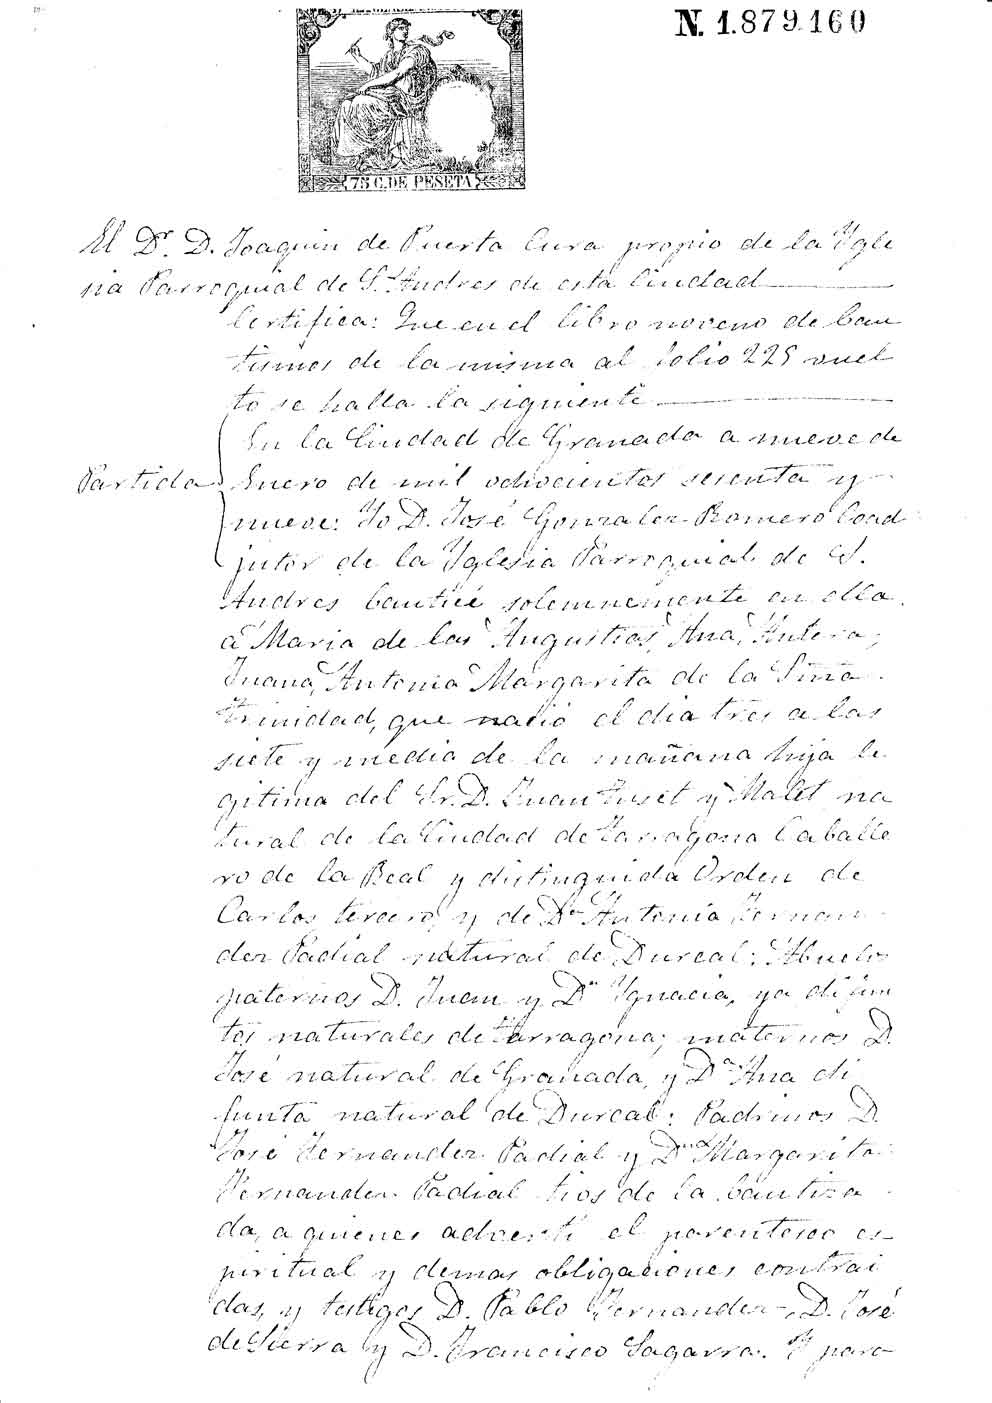 N. 1.879.160
75 C. DE PESETA
El Dr. D. Joaquin de Puerta Cura propio de la Ygle
sia Parroquial de Sn. Andres de esta Ciudad
Certifica: Que en el libro noveno de bau
tismos de la misma al folio 225 vuel
to se halla la siguiente
Partida
En la Ciudad de Granada a nueve de
Enero de mil ochocientos sesenta y
nueve: Yo D. José Gonzalez Romero Coad
jutor de la Yglesia Parroquial de S.
Andres bauticé solemnemente en ella
a Maria de las Angustias, Ana, Antera,
Juana, Antonia Margarita de la Sma.
Trinidad, que nació el dia tres a las
siete y media de la mañana hija le
gitima del Sr. D. Juan Tuset y Malet na
tural de la Ciudad de Tarragona Caballe
ro de la Real y distinguida Orden de
Carlos tercero, y de Da. Antonia Fernan
dez Padial natural de Durcal: Abuelos
paternos D. Juan y Da. Ygnacia, ya difun
tos naturales de Tarragona; maternos D.
José natural de Granada, y Da. Ana di
funta natural de Durcal: Padrinos D.
José Fernandez Padial y Da. Margarita
Fernandez Padial tios de la bautiza
da, a quienes adverti el parentesco es-
piritual y demas obligaciones contrai
das, y testigos D. Pablo Fernandez, D. José
de Sierra y D. Francisco Sagarra. Y para